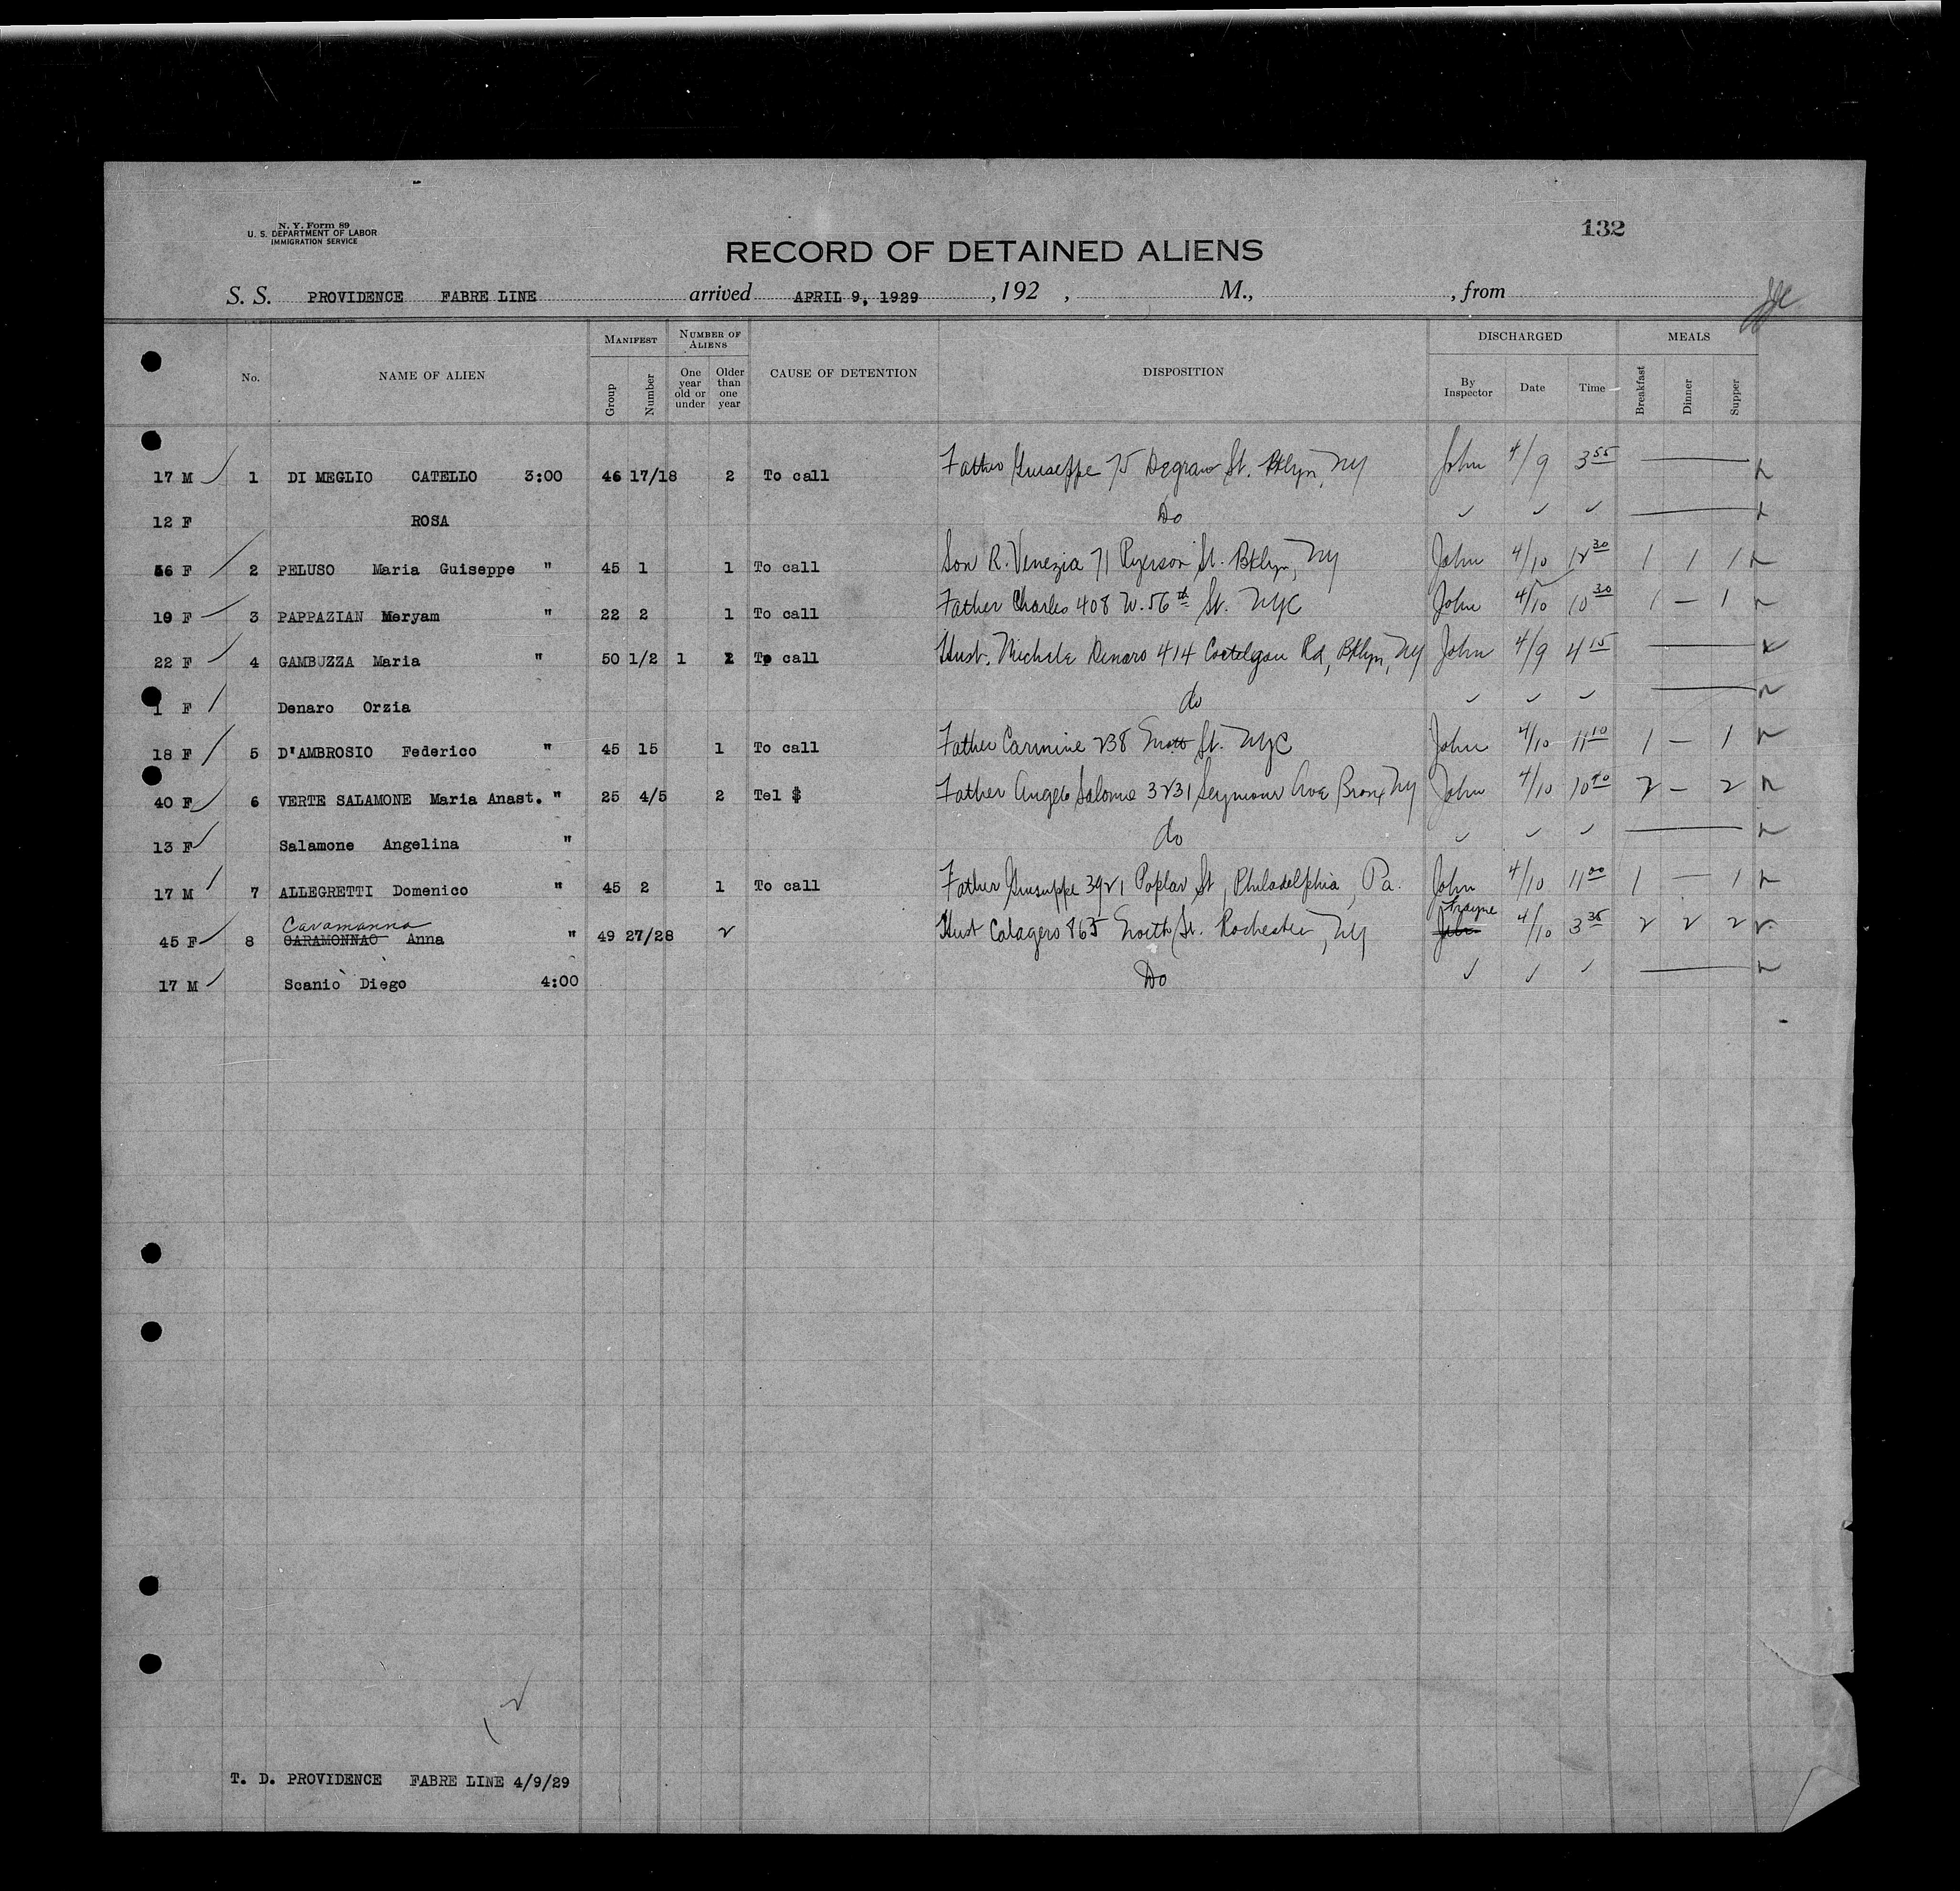 N. Y. Form 89
U. S. DEPARTMENT OF LABOR
IMMIGRATION SERVICE
132
RECORD OF DETAINED ALIENS
S. S. PROVIDENCE FABRE LINE arrived APRIL 9, 1929, 192 , M., , from
No. NAME OF ALIEN MANIFEST Group Number NUMBER OF ALIENS One year old or under Older than one year CAUSE OF DETENTION DISPOSITION DISCHARGED By Inspector Date Time MEALS Breakfast Dinner Supper
17 M 1 DI MEGLIO CATELLO 3:00 46 17/18 2 To call Father Giuseppe 75 Degraw St. Bklyn, NY John 4/9 3 55 —
12 F ROSA Do ✓ ✓ ✓ —
56 F 2 PELUSO Maria Guiseppe " 45 1 1 To call Son R. Venezia 71 Ryerson St. Bklyn, NY John 4/10 12 30 1 1 1
19 F 3 PAPPAZIAN Meryam " 22 2 1 To call Father Charles 408 W. 56th St. NYC John 4/10 10 30 1 — 1
22 F 4 GAMBUZZA Maria " 50 1/2 1 1 To call Hust. Michele Denaro 414 Rd, Bklyn, NY John 4/9 4 15 —
1 F Denaro Orzia do ✓ ✓ ✓ —
18 F 5 D'AMBROSIO Federico " 45 15 1 To call Father Carmine 238 Mott St. NYC John 4/10 11 10 1 — 1
40 F 6 VERTE SALAMONE Maria Anast. " 25 4/5 2 Tel $ Father Angelo Salome 3231 Seymour Ave Bronx NY John 4/10 10 40 2 — 2
13 F Salamone Angelina " do ✓ ✓ ✓ —
17 M 7 ALLEGRETTI Domenico " 45 2 1 To call Father Giuseppe 3921 Poplar St, Philadelphia, Pa. John 4/10 11 00 1 — 1
Cavamanna Frayne
45 F 8 CARAMONNAO Anna " 49 27/28 2 Hust Calagero 865 North St. Rochester, NY John 4/10 3 35 2 2 2
17 M Scanio Diego 4:00 Do ✓ ✓ ✓ —
T. D. PROVIDENCE FABRE LINE 4/9/29